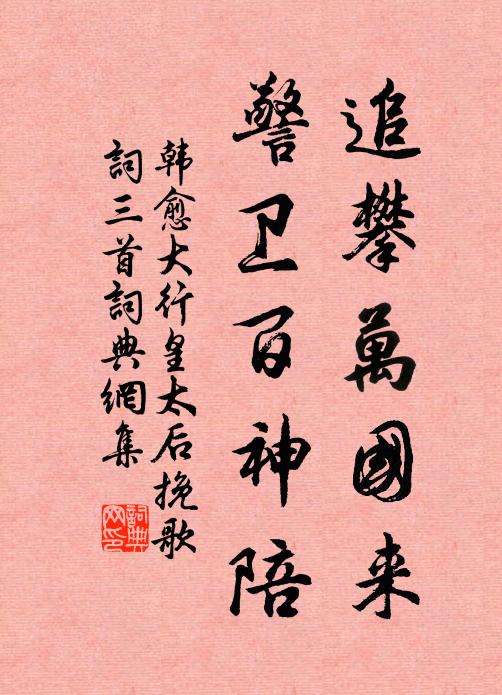 追攀萬國来
警卫百神陪
韩愈大行皇太后挽歌
詞三首詞典網集
詞典网印